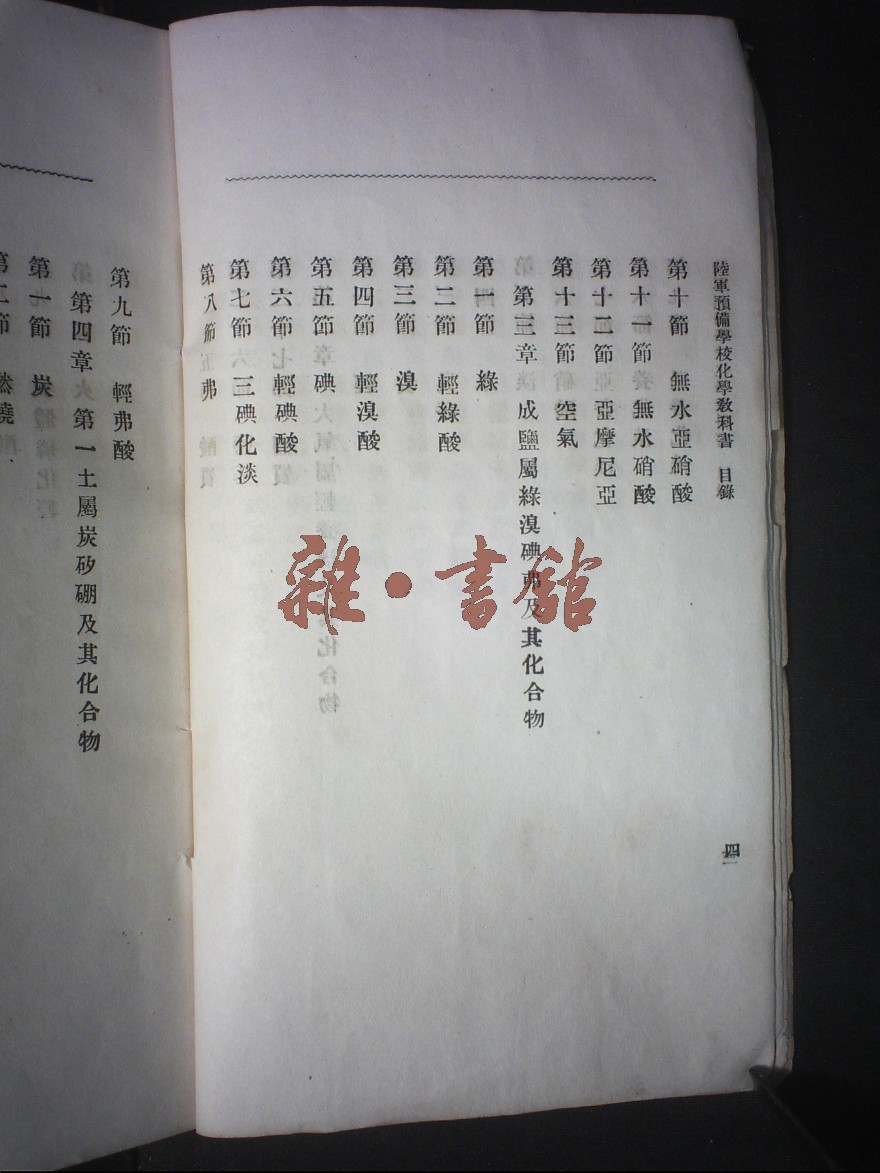 陸軍預備學校化學教科書 目錄
第十節 無水亞硝酸
第十一節 無水硝酸
第十二節 亞摩尼亞
第十三節 空氣
第三章 成鹽屬綠溴碘弗及其化合物
第一節 綠
第二節 輕綠酸
第三節 溴
第四節 輕溴酸
第五節 碘
第六節 輕碘酸
第七節 三碘化淡
第八節 弗
第九節 輕弗酸
第四章 第一土屬炭矽硼及其化合物
第一節 炭
第二節 燃燒
雜·書館